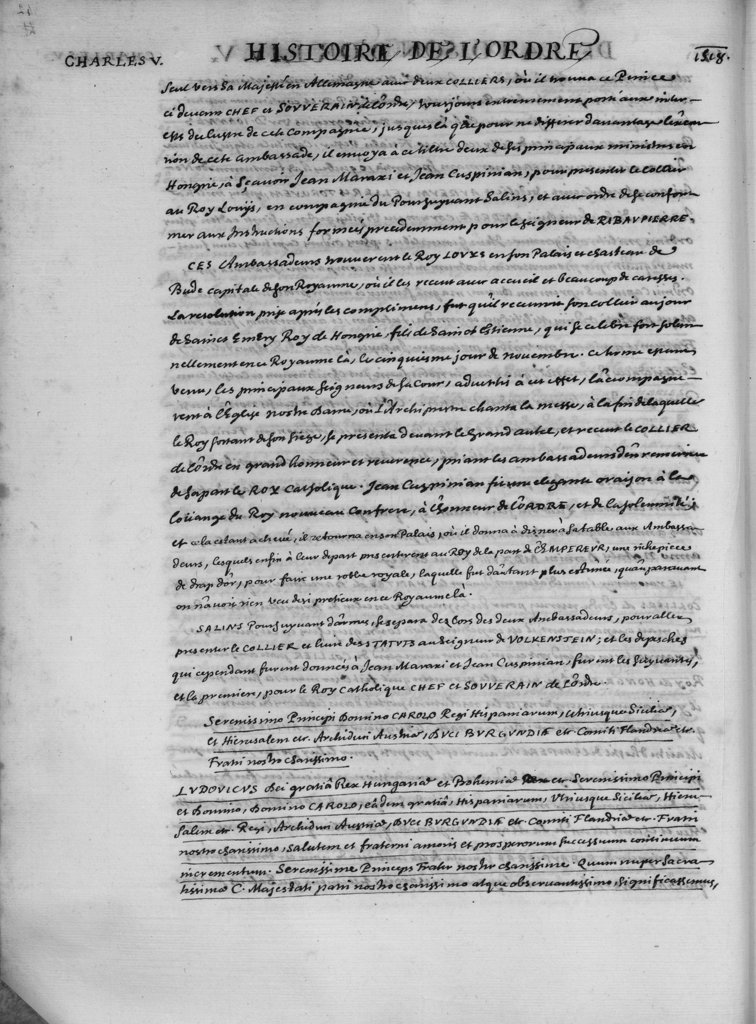 CHARLES V.
HISTOIRE DE L'ORDRE
1518.
seul vers sa Majesté en Allemagne avec deux COLLIERS, où il trouva ce Prince
ci devenu CHEF et SOUVERAIN de l'Ordre, tousjours extremement porté aux inter-
ests du lustre de cete Compagnie, jusques là que pour ne differer davantage l'exécu-
tion de cete ambassade, il envoya à ce tiltre deux de ses principaux ministres en
Hongrie, à sçavoir Jean Maraxi et Jean Cuspinian, pour presenter le Collier
au Roy Louys, en compagnie du Poursuyvant Salins, et avec ordre de se confor-
mer aux Instructions formées precedemment pour le seigneur de RIBAUPIERRE.
CES Ambassadeurs trouverent le Roy LOUYS en son Palais et chasteau de
Bude capitale de son Royaume, où il les receut avec accueil et beaucoup de caresses.
La resolution prise aprés les complimens, fut qu'il recevroit son collier au jour
de Sainct Emery Roy de Hongrie, fils de Sainct Estienne, qui se celebre fort solem-
nellement en ce Royaume là, le cinquiesme jour de novembre. Ce terme estant
venu, les principaux seigneurs de sa Cour, advertis à cet effet, l'accompagne-
rent à l'Eglise Nostre Dame, où l'Archiprestre chanta la messe, à la fin de laquelle
le Roy sortant de son siege, se presente devant le Grand autel, et receut le COLLIER
de l'Ordre en grand honneur et reverence, priant les ambassadeurs d'en remercier
de sa part le ROY Catholique. Jean Cuspinian fit une elegante oraison à la
loüange du Roy nouveau Confrere, à l'honneur de l'ORDRE, et de la solemnité;
et cela estant achevé, il retourna en son Palais, où il donna à disner à sa table aux Ambassa-
deurs, lesquels enfin à leur depart presenterent au ROY de la part de l'EMPEREUR, une riche piece
de drap d'or, pour faire une robbe royale, laquelle fut d'autant plus estimée, qu'auparavant
on n'avoit rien veu de si pretieux en ce Royaume là.
SALINS Poursuyvant d'armes, se separa des lors des deux Ambassadeurs, pour aller
presenter le COLLIER et livre des STATUTS au Seigneur de VOLKENSTEIN; et les depesches
qui cependant furent données à Jean Maraxi et Jean Cuspinian, furent les suyvantes,
et la premiere, pour le Roy Catholique CHEF et SOUVERAIN de l'Ordre.
Serenissimo Principi Domino CAROLO Regi Hispaniarum, utriusque Siciliæ,
et Hierusalem etc. Archiduci Austriæ, DUCI BURGUNDIÆ etc. Comiti Flandriæ etc.
Fratri nostro charissimo.
LUDOVICUS Dei gratiâ Rex Hungariæ et Bohemiæ etc. Serenissimo Principi
et Domino, Domino CAROLO, eâdem gratiâ, Hispaniarum, Utriusque Siciliæ, Hieru-
salem etc. Regi, Archiduci Austriæ, DUCI BURGUNDIÆ etc. Comiti Flandriæ etc. Fratri
nostro charissimo, salutem et fraterni amoris et prosperorum successuum continuum
incrementum. Serenissime Princeps Frater noster charissime. Quum nuper Sacra-
tissimæ C. Majestati patri nostro charissimo atque observantissimo, significassemus,